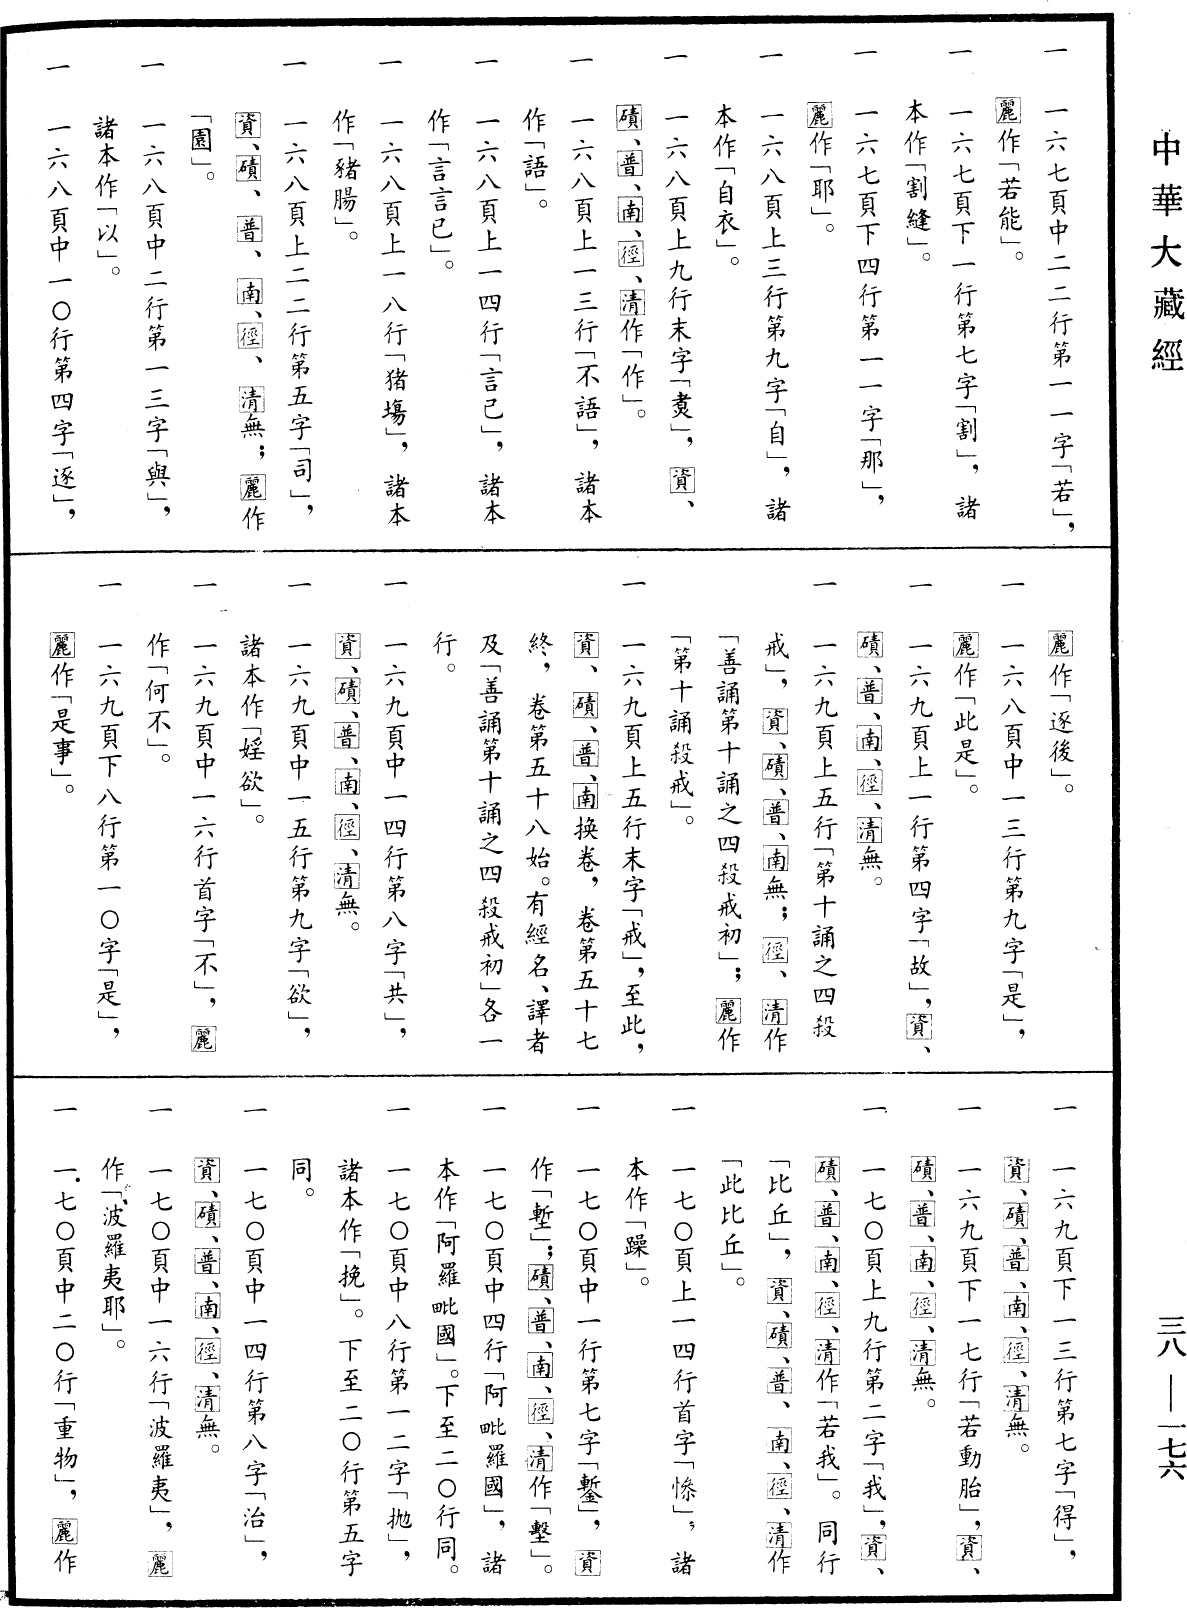 中華大藏經
三八——一七六
一 一六七頁中二二行第一一字「若」，
麗作「若能」。
一 一六七頁下一行第七字「割」，諸
本作「割縫」。
一 一六七頁下四行第一一字「那」，
麗作「耶」。
一 一六八頁上三行第九字「自」，諸
本作「自衣」。
一 一六八頁上九行末字「煑」，資、
磧、普、南、徑、清作「作」。
一 一六八頁上一三行「不語」，諸本
作「語」。
一 一六八頁上一四行「言已」，諸本
作「言言已」。
一 一六八頁上一八行「猪塲」，諸本
作「豬腸」。
一 一六八頁上二二行第五字「司」，
資、磧、普、南、徑、清無；麗作
「園」。
一 一六八頁中二行第一三字「與」，
諸本作「以」。
一 一六八頁中一〇行第四字「逐」，
麗作「逐後」。
一 一六八頁中一三行第九字「是」，
麗作「此是」。
一 一六九頁上一行第四字「故」，資、
磧、普、南、徑、清無。
一 一六九頁上五行「第十誦之四殺
戒」，資、磧、普、南無；徑、清作
「善誦第十誦之四殺戒初」；麗作
「第十誦殺戒」。
一 一六九頁上五行末字「戒」，至此，
資、磧、普、南換卷，卷第五十七
終，卷第五十八始。有經名、譯者
及「善誦第十誦之四殺戒初」各一
行。
一 一六九頁中一四行第八字「共」，
資、磧、普、南、徑、清無。
一 一六九頁中一五行第九字「欲」，
諸本作「婬欲」。
一 一六九頁中一六行首字「不」，麗
作「何不」。
一 一六九頁下八行第一〇字「是」，
麗作「是事」。
一 一六九頁下一三行第七字「得」，
資、磧、普、南、徑、清無。
一 一六九頁下一七行「若動胎」，資、
磧、普、南、徑、清無。
一 一七〇頁上九行第二字「我」，資、
磧、普、南、徑、清作「若我」。同行
「比丘」，資、磧、普、南、徑、清作
「此比丘」。
一 一七〇頁上一四行首字「慘」，諸
本作「躁」。
一 一七〇頁中一行第七字「鏨」，資
作「塹」；磧、普、南、徑、清作「墼」。
一 一七〇頁中四行「阿毗羅國」，諸
本作「阿羅毗國」。下至二〇行同。
一 一七〇頁中八行第一二字「抛」，
諸本作「挽」。下至二〇行第五字
同。
一 一七〇頁中一四行第八字「治」，
資、磧、普、南、徑、清無。
一 一七〇頁中一六行「波羅夷」，麗
作「波羅夷耶」。
一 一七〇頁中二〇行「重物」，麗作